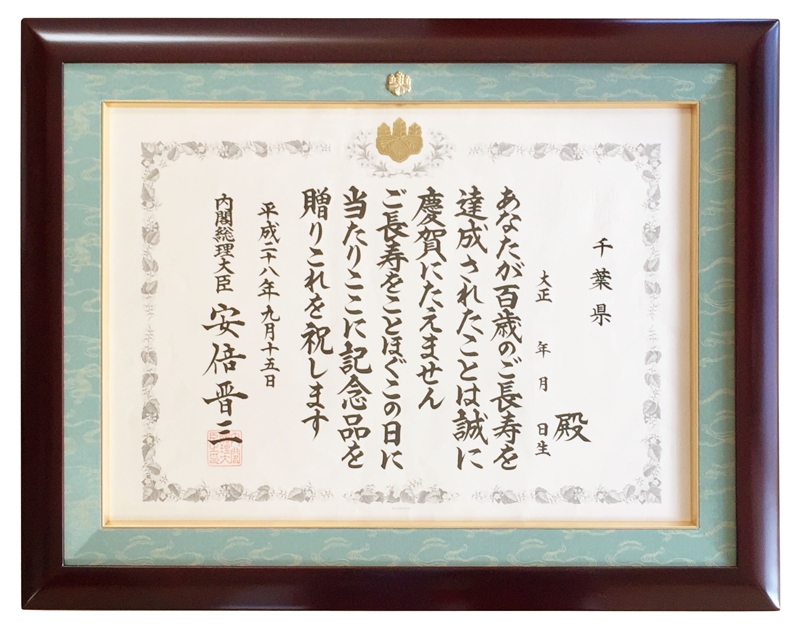 千葉県
大正 年 月 日生
殿
あなたが百歳のご長寿を
達成されたことは誠に
慶賀にたえません
ご長寿をことほぐこの日に
当たりここに記念品を
贈りこれを祝します
平成二十八年九月十五日
内閣総理大臣 安倍晋三